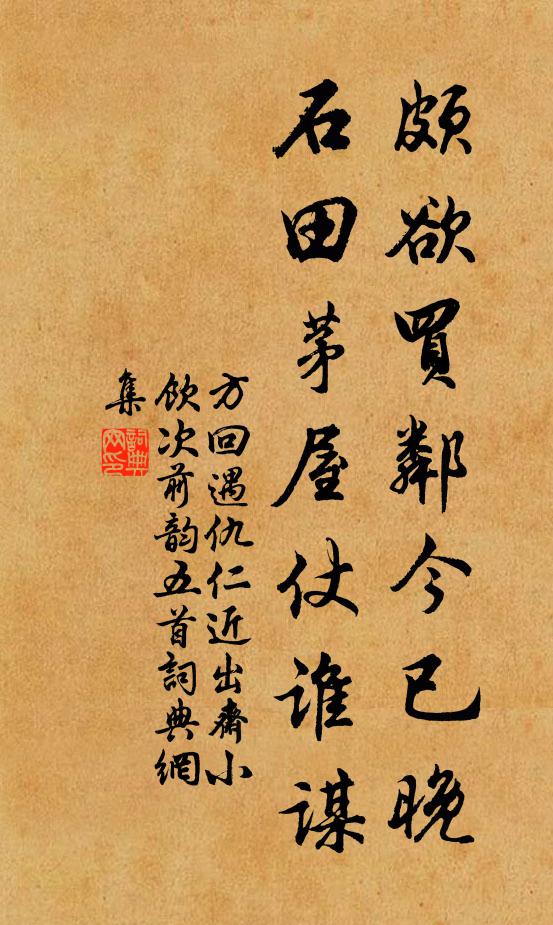 頗欲買鄰今已晚
石田茅屋仗誰謀
方回遇仇仁近出齋小
飲次前韵五首詞典網
集
詞典网印